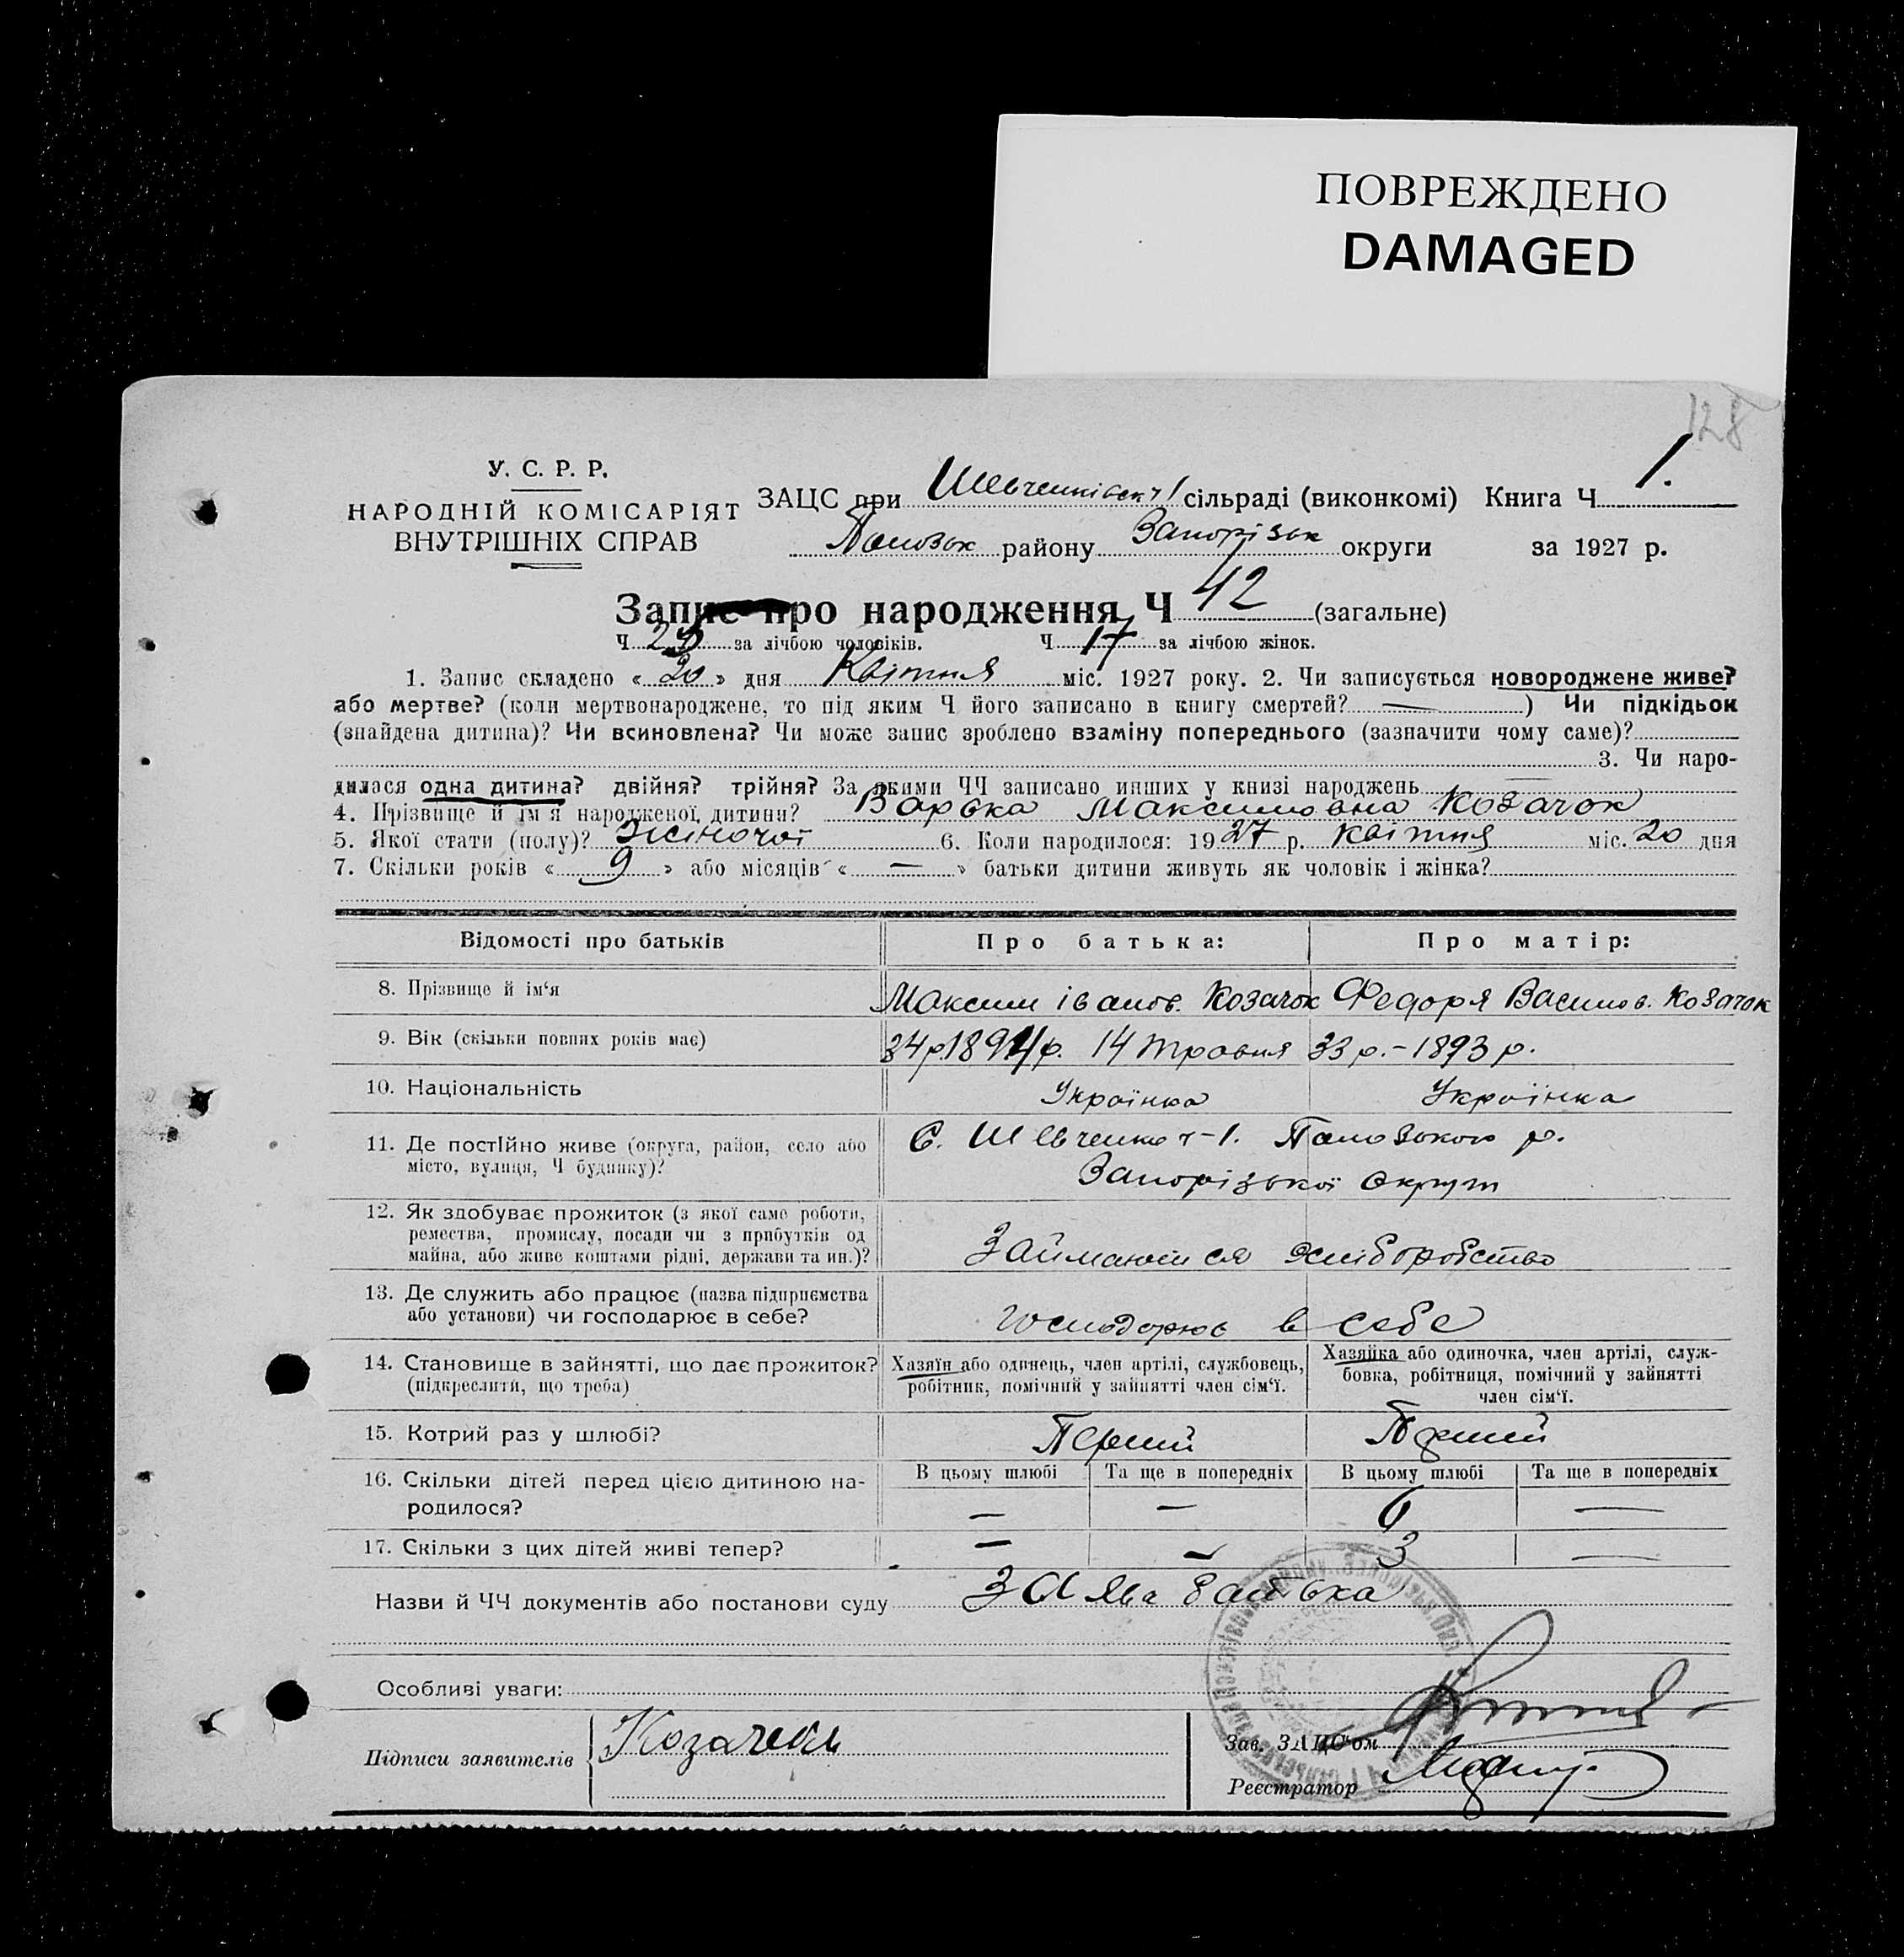 ПОВРЕЖДЕНО
DAMAGED
128
У. С. Р. Р.
НАРОДНІЙ КОМІСАРІЯТ
ВНУТРІШНІХ СПРАВ
ЗАЦС при Шевченківськ 1 сільраді (виконкомі) Книга Ч 1.
району Запорізьк округи за 1927 р.
Запис про народження Ч 42 (загальне)
Ч 25 за лічбою чоловіків. Ч 17 за лічбою жінок.
1. Запис складено « 20 » дня Квітня міс. 1927 року. 2. Чи записується новороджене живе?
або мертве? (коли мертвонароджене, то під яким Ч його записано в книгу смертей? — ) Чи підкідьок
(знайдена дитина)? Чи всиновлена? Чи може запис зроблено взаміну попереднього (зазначити чому саме)?
3. Чи наро-
дилася одна дитина? двійня? трійня? За якими ЧЧ записано инших у книзі народжень —
4. Прізвище й ім'я народженої дитини? Варька Максимовна Козачок
5. Якої стати (полу)? жіночої 6. Коли народилося: 1927 р. квітня міс. 20 дня
7. Скільки років « 9 » або місяців « — » батьки дитини живуть як чоловік і жінка?
Відомості про батьків Про батька: Про матір:
8. Прізвище й ім'я Максим Іванов. Козачок Федоря Василов. Козачок
9. Вік (скільки повних років має) 34 р. 1894 р. 14 травня 33 р. – 1893 р.
10. Національність Українка Українка
11. Де постійно живе (округа, район, село або
місто, вулиця, Ч будинку)?
С. Шевченко -1. р.
Запорізької округи
12. Як здобуває прожиток (з якої саме роботи,
ремества, промислу, посади чи з прибутків од
майна, або живе коштами рідні, держави та ин.)?
Займаються хліборобство
13. Де служить або працює (назва підприємства
або установи) чи господарює в себе?
господарює в себе
14. Становище в зайнятті, що дає прожиток?
(підкреслити, що треба)
Хазяїн або одинець, член артілі, службовець,
робітник, помічний у зайнятті член сім'ї.
Хазяйка або одиночка, член артілі, служ-
бовка, робітниця, помічний у зайнятті
член сім'ї.
15. Котрий раз у шлюбі? Перший Перший
16. Скільки дітей перед цією дитиною на-
родилося?
В цьому шлюбі Та ще в попередніх В цьому шлюбі Та ще в попередніх
— — 6 —
17. Скільки з цих дітей живі тепер? — — 3 —
Назви й ЧЧ документів або постанови суду Заява батька
Особливі уваги:
Підписи заявителів Козачок
Зав. ЗАЦС'ом
Реєстратор